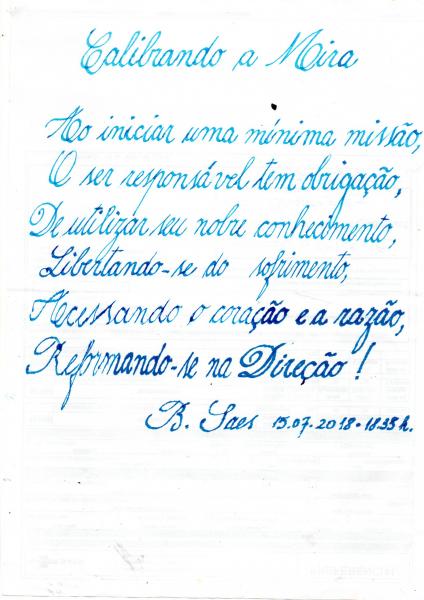 Calibrando a Mira
Ao iniciar uma mínima missão,
O ser responsável tem obrigação,
De utilizar seu nobre conhecimento,
Libertando-se do sofrimento,
Acessando o coração e a razão,
Reformando-se na Direção!
B. Saes 15.07.2018 - 18:35 h.